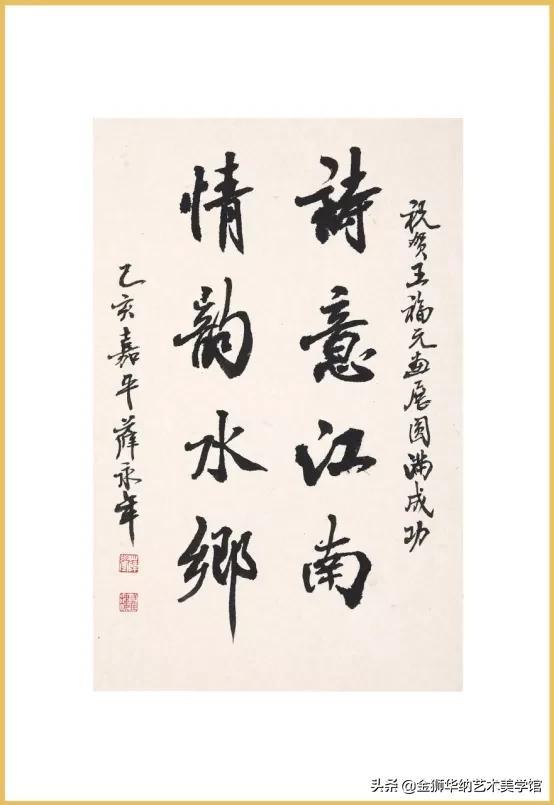 祝贺王福元画展圆满成功
詩意江南
情韵水鄉
乙亥嘉平薛永年
头条 @金狮华纳艺术美学馆